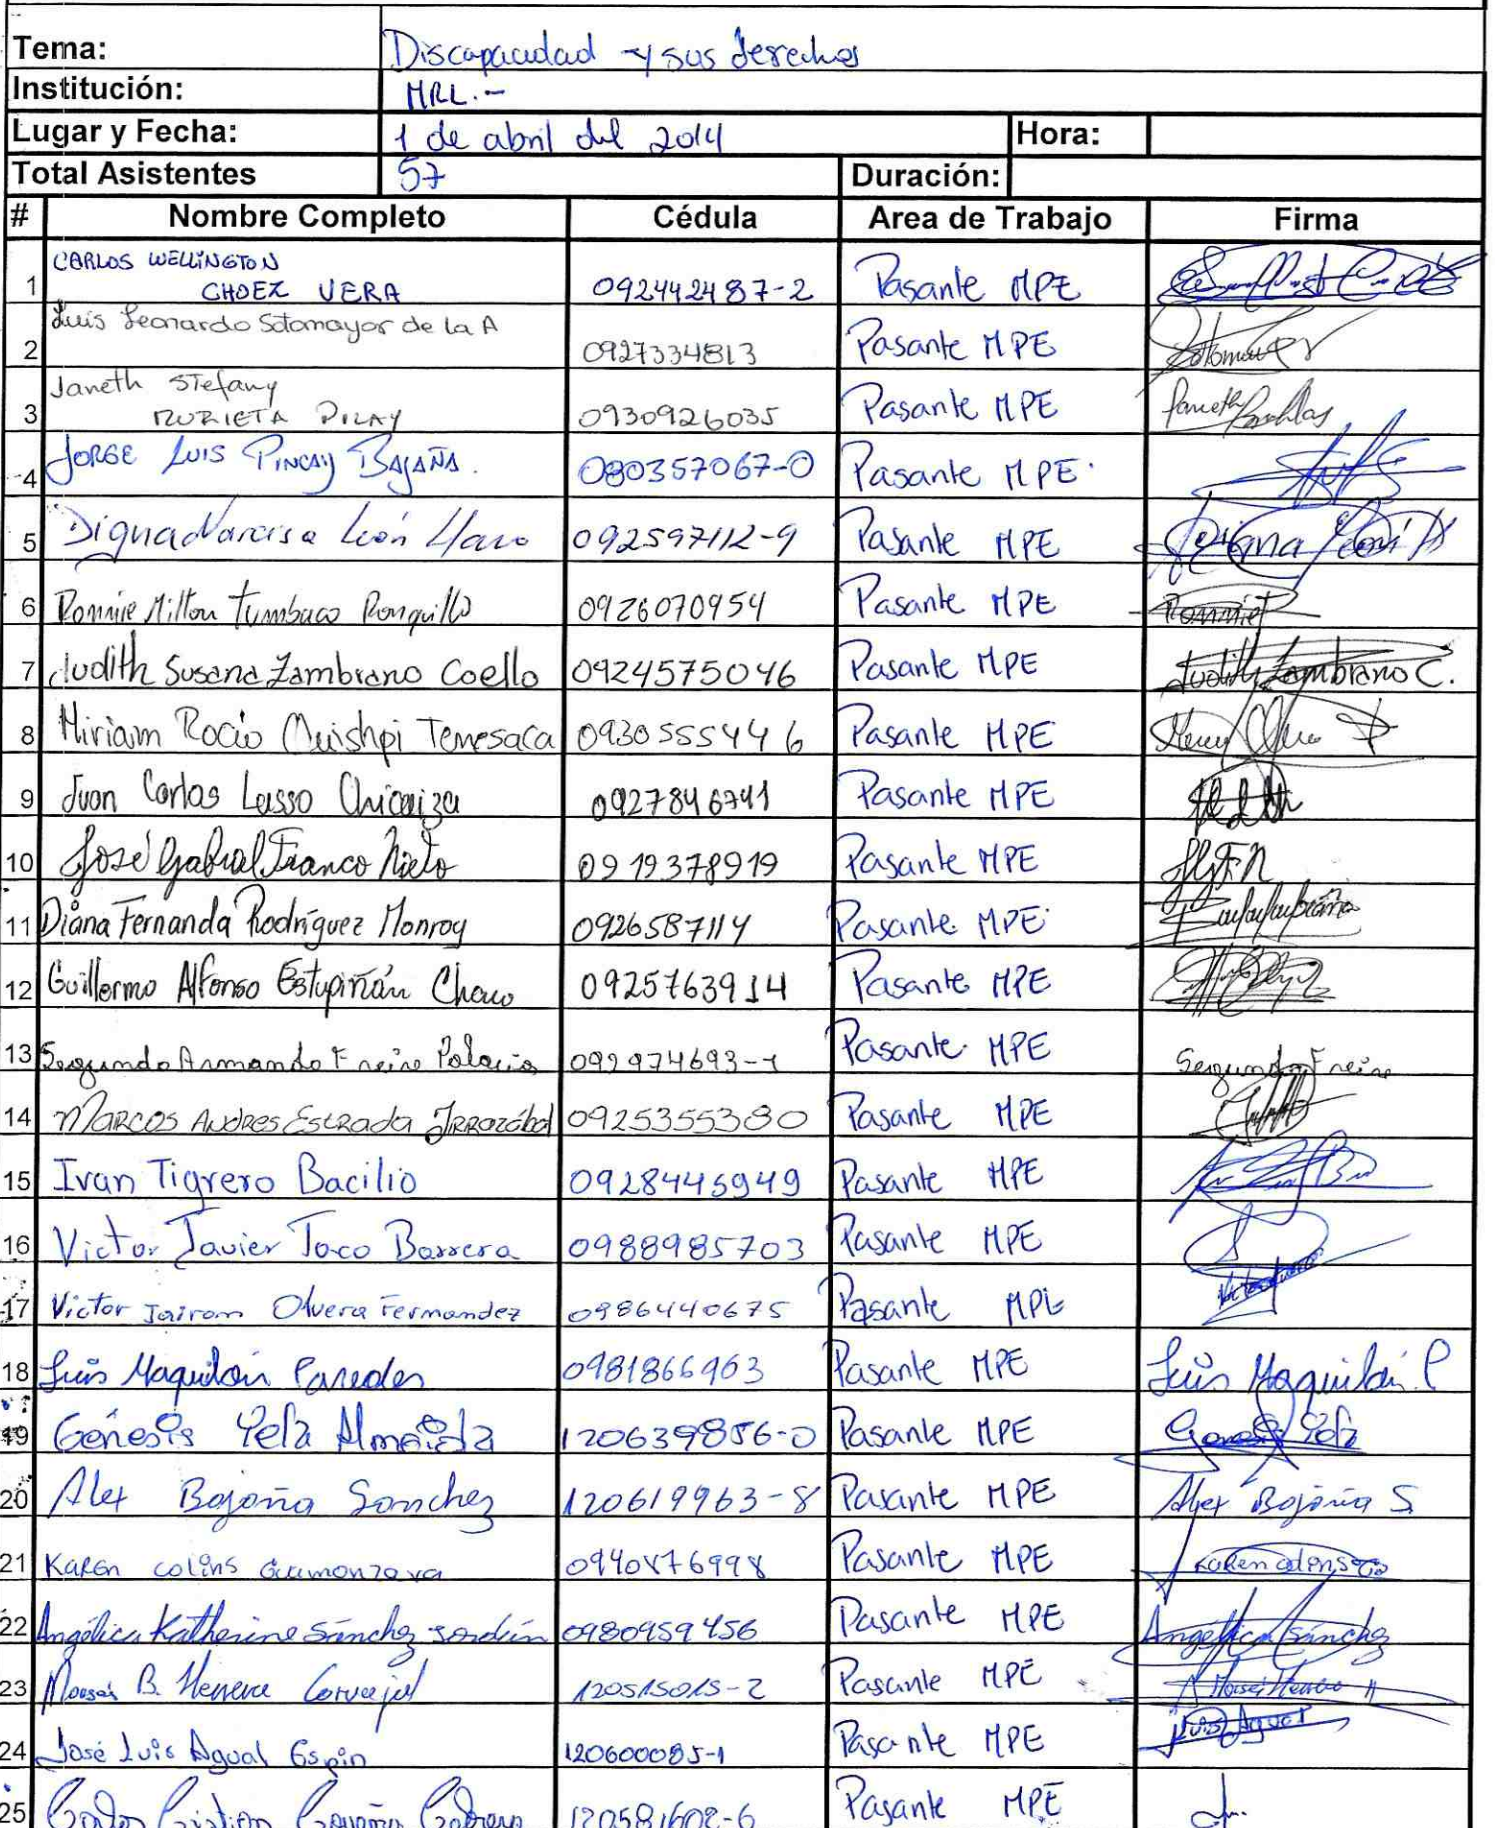 Tema: Discapacidad y sus derechos
Institución: MRL.-
Lugar y Fecha: 1 de abril del 2014 Hora:
Total Asistentes 57 Duración:
# Nombre Completo Cédula Area de Trabajo Firma
CARLOS WELLINGTON
1 CHOEZ VERA 092442487-2 Pasante MPE
Luis Leonardo Sotomayor de la A
2 0927334813 Pasante MPE Sotomayor
Janeth Stefany
3 MURIETA PILAY 0930926035 Pasante MPE Janeth
4 JORGE LUIS PINCAY BAJAÑA. 080357067-0 Pasante MPE.
5 Digna Narcisa León Haro 092597112-9 Pasante MPE Digna León H
6 Ronnie Milton Tumbaco Ronquillo 0926070954 Pasante MPE Ronnie T
7 Judith Susana Zambrano Coello 0924575046 Pasante MPE Judith Zambrano C.
8 Miriam Rocío Quishpi Temesaca 0930555446 Pasante MPE
9 Juan Carlos Lasso Chicaiza 0927846741 Pasante MPE
10 José Gabriel Franco Nieto 0919378919 Pasante MPE JGFN
11 Diana Fernanda Rodríguez Monroy 0926587114 Pasante MPE
12 Guillermo Alfonso Estupiñán Chavo 0925763914 Pasante MPE
13 Segundo Armando Freire Palacio 092974693-1 Pasante MPE Segundo Freire
14 MARCOS ANDRES ESTRADA IRRAZÁBAL 0925355380 Pasante MPE
15 Ivan Tigrero Bacilio 0928445949 Pasante MPE
16 Victor Javier Toco Barrera 0988985703 Pasante MPE
17 Victor Jairom Olvera Fernandez 0986440675 Pasante MPE
18 Luis Maquilón Paredes 0981866963 Pasante MPE Luis Maquilón P
19 Génesis Peña Almeida 120639856-0 Pasante MPE Genesis
20 Alex Bajaña Sanchez 120619963-8 Pasante MPE Alex Bajaña S
21 Karen Colins Guamonzava 0940876998 Pasante MPE Karen Colins G
22 Angélica Katherine Sánchez Jordán 0980959456 Pasante MPE Angélica Sánchez
23 Moises B. Herrera Carvajal 120515015-2 Pasante MPE Moises Herrera
24 José Luis Agual Espin 120600085-1 Pasante MPE Luis Agual
25 Carlos Cristian 120581602-6 Pasante MPE